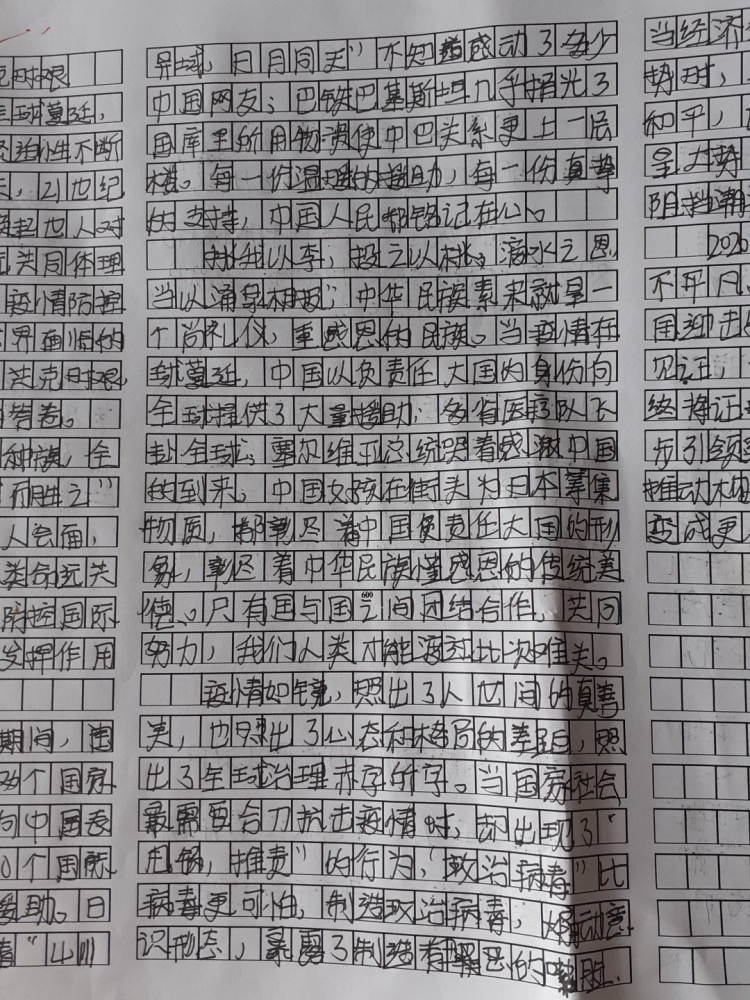 克时艰
全球蔓延，
统治性不断
天，21世纪
负起世人对
运共同体理
疫情防控
世界面临的
共克时艰
的答卷。
种族，全
而胜之"
人会面，
类命运共
防控国际
发挥作用
期间，国
个国家
向中国表
0个国家
援助。日
情"山川
异域，日月同天"不知道感动了多少
中国网友；巴铁巴基斯坦几乎捐光了
国库里所用物资使中巴关系更上一层
楼。每一份温暖的援助，每一份真挚
的支持，中国人民都铭记在心。
投我以李，投之以桃。滴水之恩
当以涌泉相报"；中华民族素来就是一
个尚礼仪，重感恩的民族。当疫情在
球蔓延，中国以负责任大国的身份向
全球提供了大量援助；多省医疗队飞
赴全球，塞尔维亚总统哭着感激中国
的到来。中国女孩在街头为日本募集
物质，都彰显着中国负责任大国的形
象，彰显着中华民族懂感恩的传统美
德。只有国与国之间团结合作，共同
600
努力，我们人类才能渡过此次难关。
疫情如镜，照出了人世间的真善
美，也照出了心态和格局的差距，照
出了全球治理赤字所字。当国家社会
最需要合力抗击疫情时，却出现了"
甩锅，推责"的行为，"政治病毒"比
病毒更可怕，制造政治病毒，煽动意
识形态，暴露了制造者的
当经济
势时，
和平，
呈大势
阴挡潮
2020
不平凡
国迎击
见证，
终将证
步引领
推动构
变成更